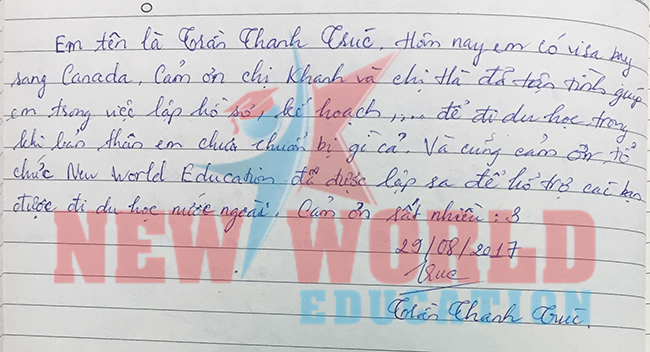 Em tên là Trần Thanh Trúc. Hôm nay em có visa bay
sang Canada. Cảm ơn chị Khanh và chị Hà đã tận tình giúp
em trong việc lập hồ sơ, kế hoạch,... để đi du học trong
khi bản thân em chưa chuẩn bị gì cả. Và cũng cảm ơn tổ
chức New World Education đã được lập ra để hỗ trợ các bạn
được đi du học nước ngoài. Cảm ơn rất nhiều :3
29/08/2017
Truc
Trần Thanh Trúc.
NEW WORLD
EDUCATION